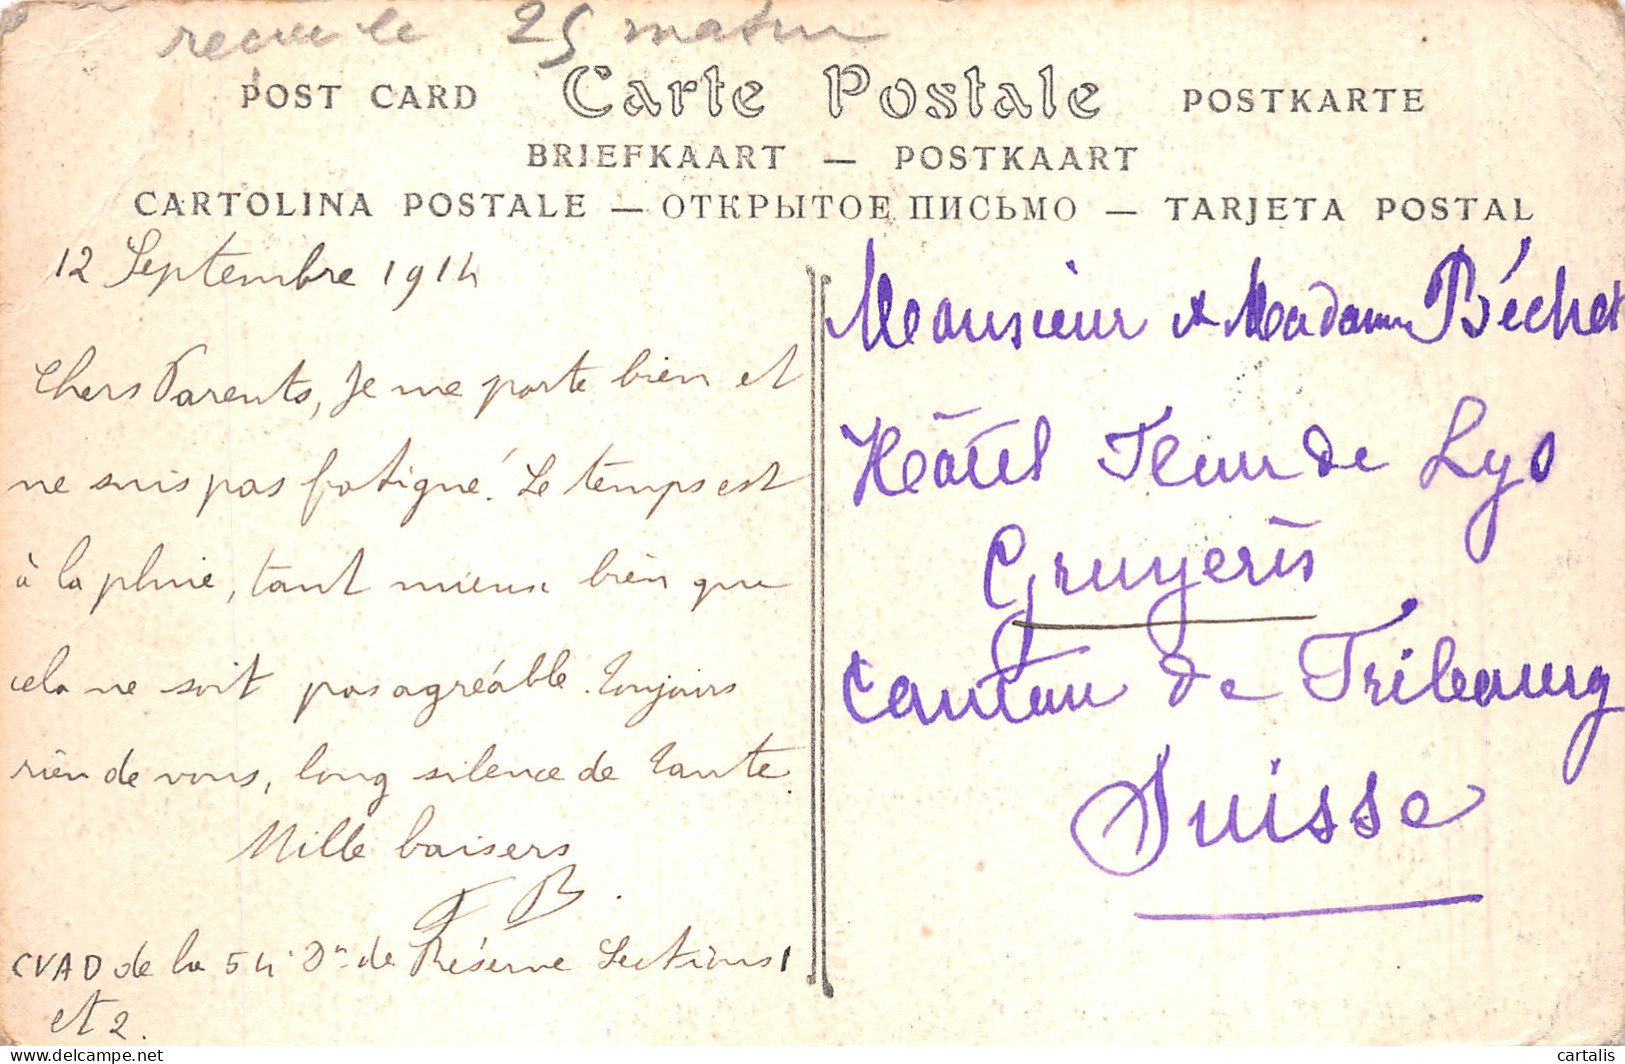 recue le 25 matin
POST CARD Carte Postale POSTKARTE
BRIEFKAART — POSTKAART
CARTOLINA POSTALE — ОТКРЫТОЕ ПИСЬМО — TARJETA POSTAL
12 Septembre 1914
Chers Parents, Je me porte bien et
ne suis pas fatigué. Le temps est
à la pluie, tant mieux bien que
cela ne soit pas agréable. Toujours
rien de vous, long silence de Tante.
Mille baisers
F B.
CVAD de la 54e Don de Réserve Sections 1
et 2.
Monsieur et Madame Béchet
Hôtel Fleur de Lys
Gruyères
Canton de Fribourg
Suisse
cartalis